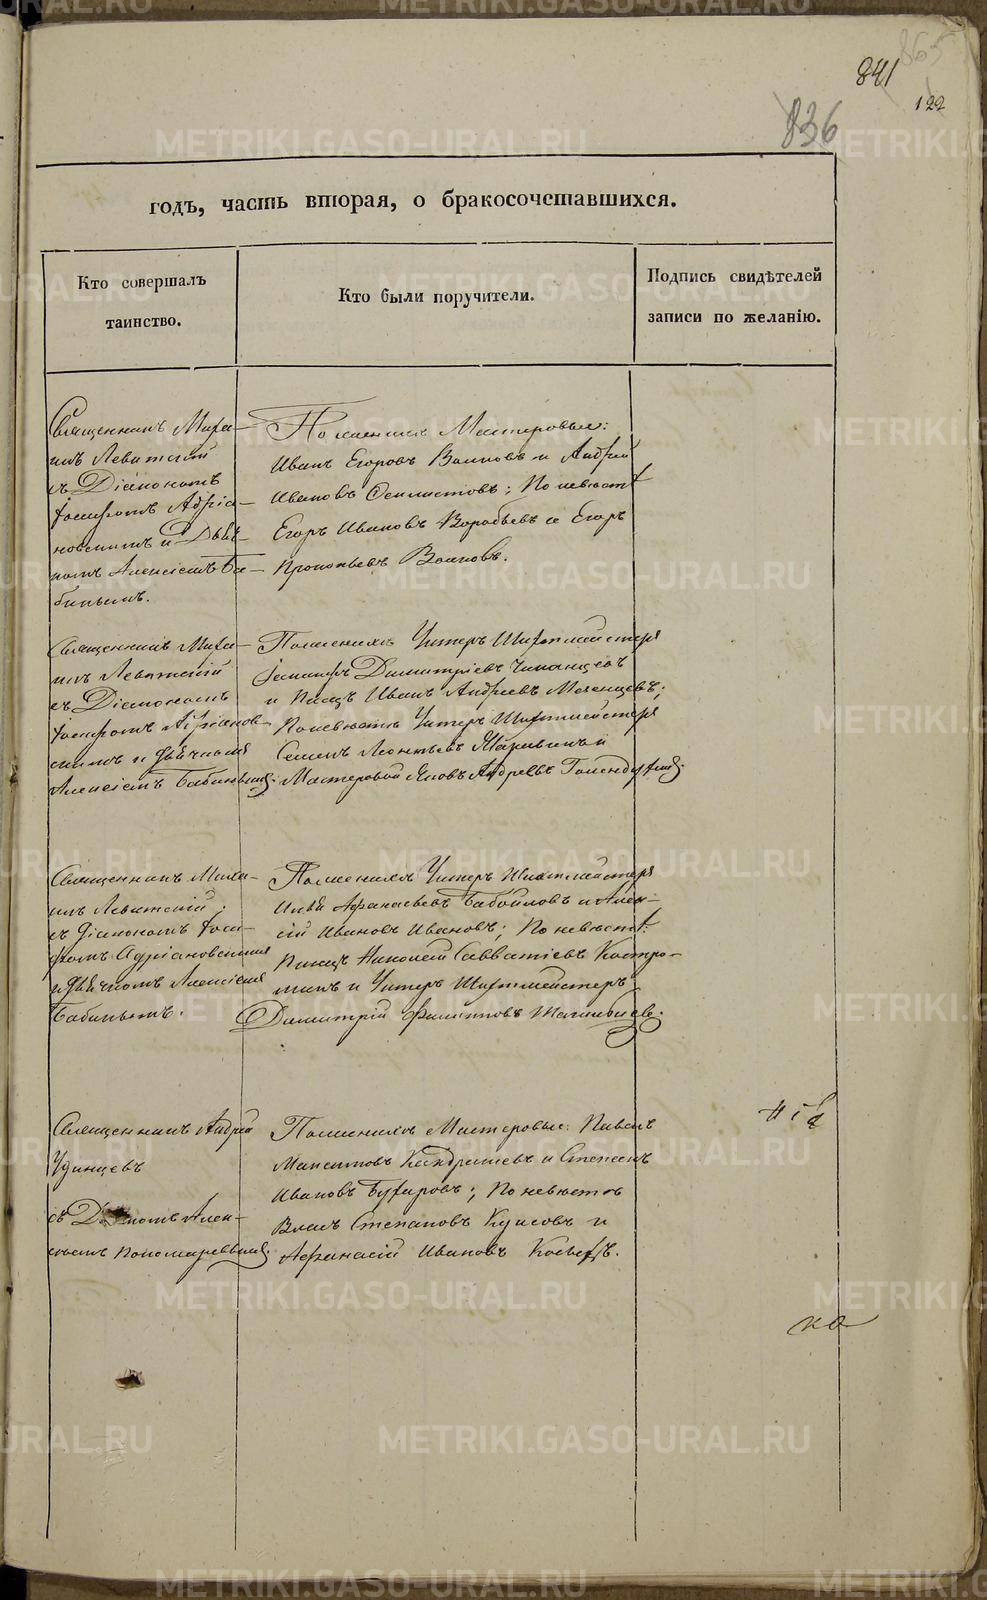 865
841
122
836
годъ, часть вторая, о бракосочетавшихся.
Кто совершалъ
таинство.
Кто были поручители.
Подпись свидѣтелей
записи по желанію.
Священникъ Миха-
илъ Левитскій
съ Діакономъ
Іосифомъ Адріа-
новскимъ и Дьяч-
комъ Алексіемъ Ба-
бинымъ.
По женихѣ Мастеровые:
Иванъ Егоровъ Волковъ и Андрей
Ивановъ; По невѣстѣ
Егоръ Ивановъ Воробьевъ и Егоръ
Прокопьевъ Волковъ.
Священникъ Миха-
илъ Левитскій
съ Діакономъ
Іосифомъ Адріанов-
скимъ и Дьячкомъ
Алексіемъ Бабинымъ.
По женихѣ Унтеръ Шихтмейстеръ
Димитріевъ
и Писецъ Иванъ Андреевъ;
По невѣстѣ Унтеръ Шихтмейстеръ
Семенъ Леонтьевъ
Мастеровой Яковъ Андреевъ
Священникъ Миха-
илъ Левитскій
съ Діакономъ Іоси-
фомъ Адріановскимъ
и Дьячкомъ Алексіемъ
Бабинымъ.
По женихѣ Унтеръ Шихтмейстеръ
Илья Афанасьевъ и Алек-
сій Ивановъ Ивановъ; По невѣстѣ:
Писецъ Николай Савватіевъ Костро-
минъ и Унтеръ Шихтмейстеръ
Димитрій Филипповъ
Священникъ Андрей
Удинцевъ
съ Алек-
сѣемъ Пономаревымъ.
По женихѣ Мастеровые:
Кондратьевъ и Степанъ
Ивановъ; По невѣстѣ
Власъ Степановъ и
Афанасій Ивановъ.
METRIKI.GASO-URAL.RU